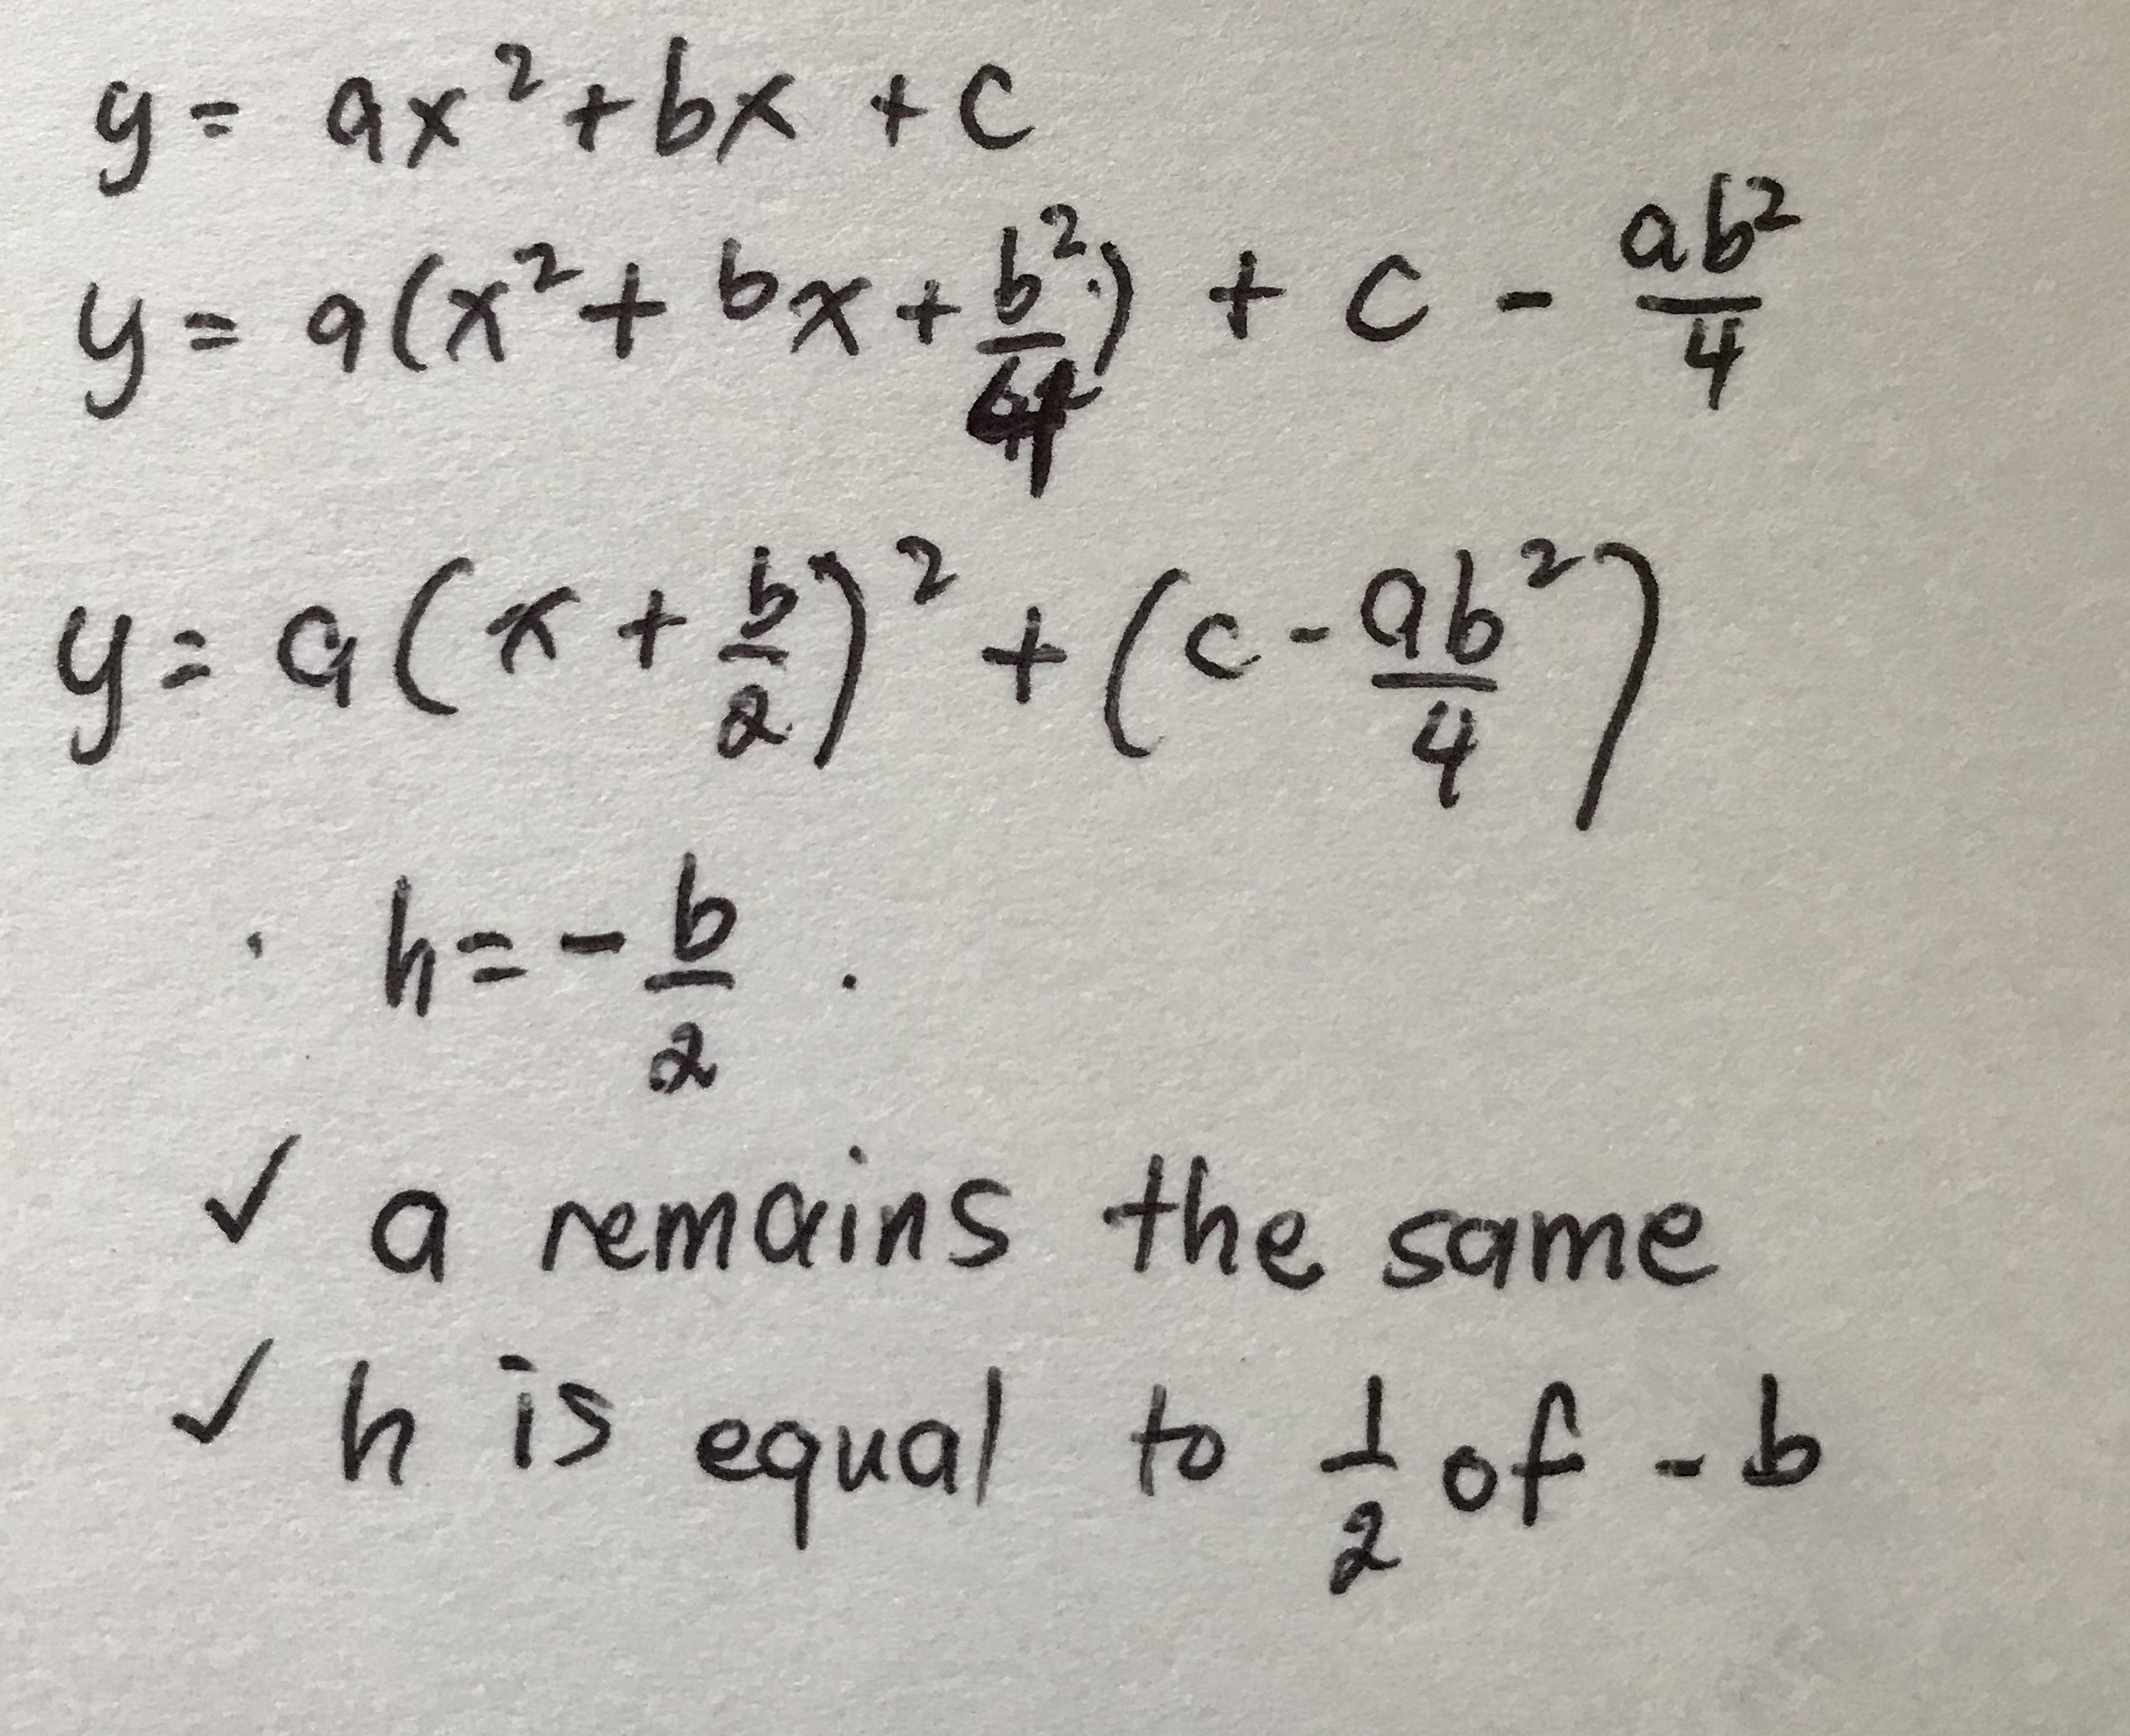 y = ax² + bx + c
y = a(x² + bx + b²/4) + c - ab²/4
y = a(x + b/2)² + (c - ab²/4)
h = - b/2 .
✓ a remains the same
✓ h is equal to 1/2 of - b